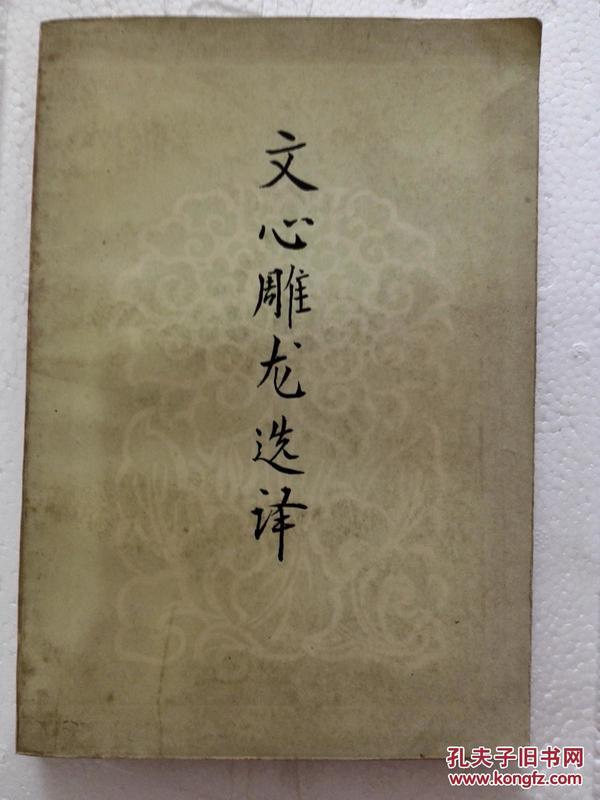 文心雕龙选译
孔夫子旧书网
www.kongfz.com